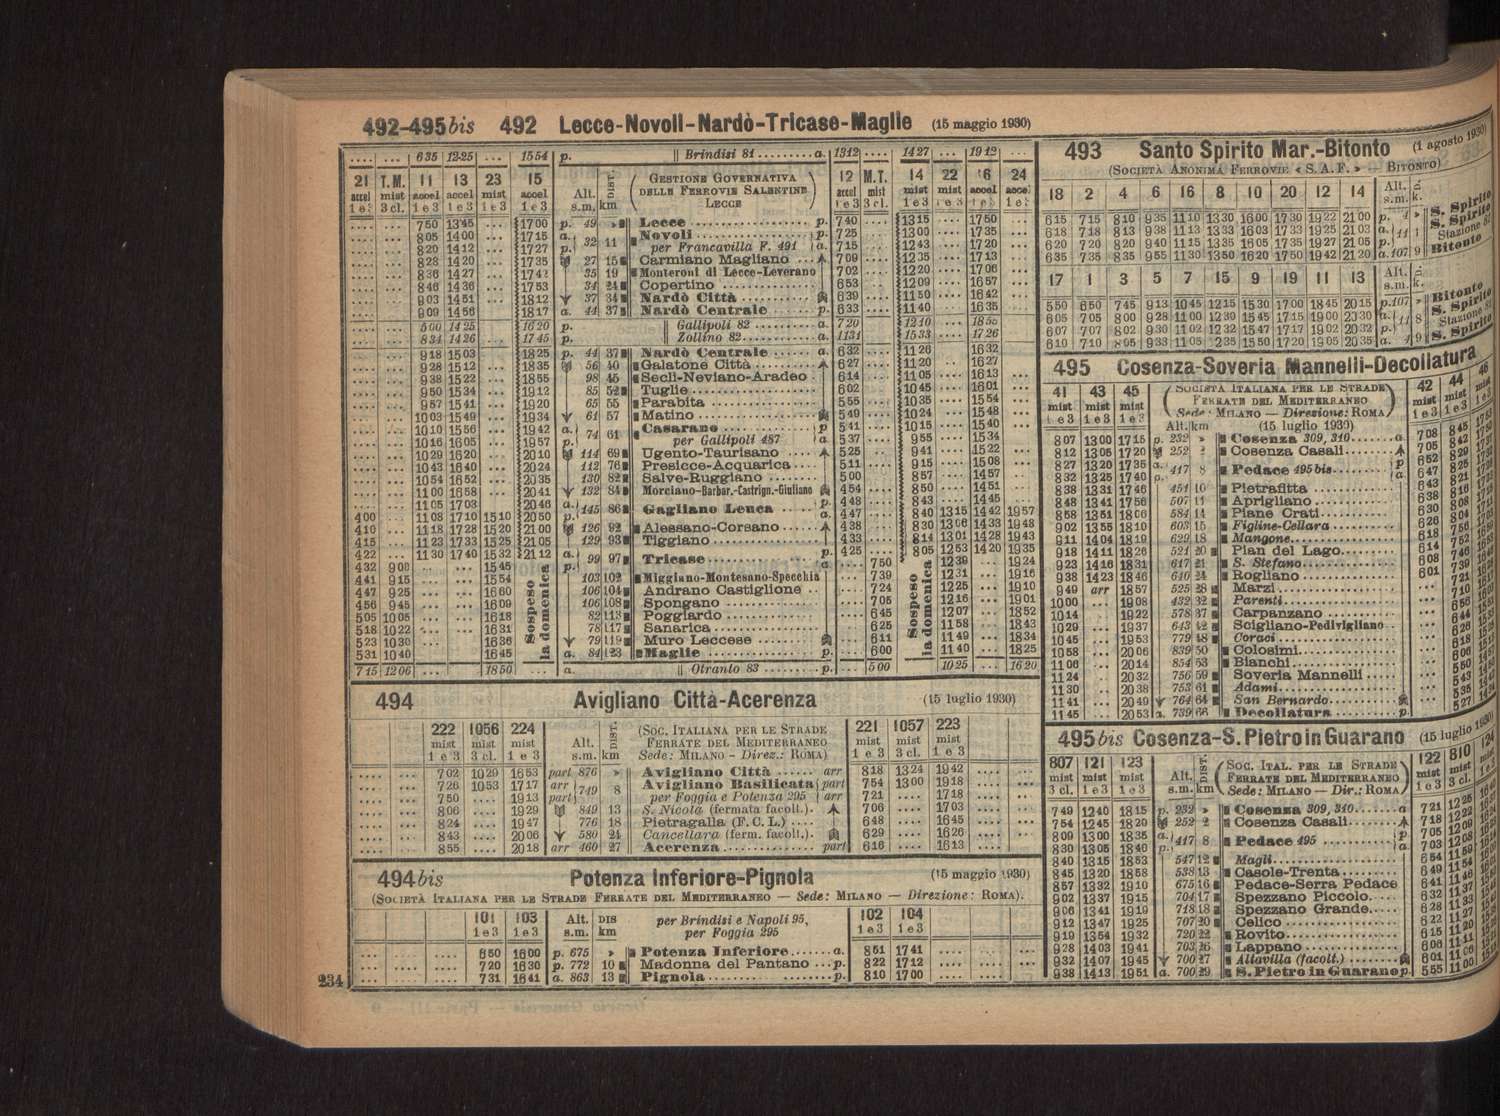 492-495bis 492 Lecce-Novoli-Nardò-Tricase-Maglie (15 maggio 1930)
.... ... 635 12·25 ... 1554 p. || Brindisi 81 ......... a. 1312 .... 1427 ... 1912 ...
21 T.M. 11 13 23 15 Alt. DIST. (GESTIONE GOVERNATIVA 12 M.T. 14 22 16 24
accel mist accel accel mist accel s.m. km DELLE FERROVIE SALENTINE accel mist mist mist accel accel
1 e 3 3 cl. 1 e 3 1 e 3 1 e 3 1 e 3 LECCE) 1 e 3 3 cl. 1 e 3 1 e 3 1 e 3 1 e 3
750 1345 ... 1700 p. 49 » Lecce p. 740 .... 1315 .... 1750
805 1400 ... 1715 a. 32 11 Novoli p. 725 .... 1300 .... 1735
820 1412 ... 1727 p. per Francavilla F. 491 a. 715 .... 1243 .... 1720
828 1420 ... 1735 27 15 Carmiano Magliano 709 .... 1235 .... 1713
836 1427 ... 1742 35 19 Monteroni di Lecce-Leverano 702 .... 1220 .... 1706
846 1436 ... 1753 34 24 Copertino 653 .... 1209 .... 1657
903 1451 ... 1812 37 34 Nardò Città 639 .... 1150 .... 1642
909 1456 ... 1817 a. 44 37 Nardò Centrale p. 633 .... 1140 .... 1635
600 1425 ... 1620 p. || Gallipoli 82 a. 720 .... 1210 ....
834 1426 ... 1745 p. || Zollino 82 a. 1131 .... 1533 ... 1726
918 1503 ... 1825 p. 44 37 Nardò Centrale a. 632 .... 1126 1632
928 1512 ... 1835 56 40 Galatone Città 627 .... 1120 1627
938 1522 ... 1855 98 45 Seclì-Neviano-Aradeo 614 .... 1105 1613
950 1534 ... 1912 85 52 Tuglie 602 .... 1045 1601
957 1541 ... 1920 65 55 Parabita 555 .... 1035 1554
1003 1549 ... 1934 61 57 Matino 549 .... 1024 1548
1010 1556 ... 1942 a. 74 61 Casarano p 541 .... 1015 1540
1016 1605 ... 1957 p. per Gallipoli 487 a 537 .... 955 1534
1029 1620 ... 2010 114 69 Ugento-Taurisano 525 .... 941 1522
1043 1640 ... 2024 112 76 Presicce-Acquarica 511 .... 915 1508
1054 1652 ... 2035 130 82 Salve-Ruggiano 500 .... 857 1457
1100 1658 ... 2041 132 84 Morciano-Barbar.-Castrign.-Giuliano 454 .... 850 1451
1105 1703 ... 2046 a. 145 86 Gagliano Leuca p. 448 .... 843 1445
400 ... 1108 1710 1510 2050 p. a. 447 .... 840 1315 1442 1957
410 ... 1118 1728 1520 2100 126 92 Alessano-Corsano 438 .... 830 1306 1433 1948
415 ... 1123 1733 1525 2105 129 93 Tiggiano 433 .... 814 1301 1428 1943
422 ... 1130 1740 1532 2112 a. 99 97 Tricase p. 425 .... 805 1253 1420 1935
432 900 ... ... 1545 p. a. ... 750 1239 ... 1924
441 915 ... ... 1554 103 102 Miggiano-Montesano-Specchia ... 739 1231 ... 1916
447 925 ... ... 1600 106 104 Andrano Castiglione ... 724 1225 ... 1910
456 945 ... ... 1609 106 108 Spongano ... 705 1216 ... 1901
505 1005 ... ... 1618 82 113 Poggiardo 645 1207 ... 1852
518 1022 ... ... 1631 78 117 Sanarica 625 1158 ... 1843
523 1030 ... ... 1636 79 119 Muro Leccese 611 1149 ... 1834
531 1040 ... ... 1645 a. 84 123 Maglie p. 600 1140 ... 1825
Sospeso la domenica
Sospeso la domenica
715 1206 .... .... 1850 ... a. || Otranto 83 p. ... 500 1025 ... 1620
494 Avigliano Città-Acerenza (15 luglio 1930)
222 1056 224 Alt. DIST. (SOC. ITALIANA PER LE STRADE 221 1057 223
mist mist mist s.m. km FERRATE DEL MEDITERRANEO mist mist mist
1 e 3 3 cl. 1 e 3 Sede: MILANO - Direz.: ROMA) 1 e 3 3 cl. 1 e 3
702 1029 1653 part 876 » Avigliano Città arr 818 1324 1942
726 1053 1717 arr 749 8 Avigliano Basilicata part 754 1300 1918
750 .... 1913 part per Foggia e Potenza 295 arr 721 .... 1718
806 .... 1929 849 13 S. Nicola (fermata facolt.). 706 .... 1703
824 .... 1947 776 18 Pietragalla (F. C. L.) 648 .... 1645
843 .... 2006 580 24 Cancellara (ferm. facolt.). 629 .... 1626
855 .... 2018 arr 460 27 Acerenza part 616 .... 1613
494bis Potenza Inferiore-Pignola (15 maggio 1930)
(SOCIETÀ ITALIANA PER LE STRADE FERRATE DEL MEDITERRANEO — Sede: MILANO — Direzione: ROMA).
101 103 Alt. DIS per Brindisi e Napoli 95, 102 104
1 e 3 1 e 3 s.m. km per Foggia 295 1 e 3 1 e 3
650 1600 p. 675 » Potenza Inferiore a. 851 1741
720 1630 p. 772 10 Madonna del Pantano p. 822 1712
731 1641 a. 863 13 Pignola p. 810 1700
234
493 Santo Spirito Mar.-Bitonto (1 agosto 1930)
(SOCIETÀ ANONIMA FERROVIE « S.A.F. » — BITONTO)
18 2 4 6 16 8 10 20 12 14 Alt. s.m. k.
615 715 810 935 1110 1330 1600 1730 1922 2100 p. 4 » S. Spirito
618 718 813 938 1113 1333 1603 1733 1925 2103 a. 11 1 S. Spirito
620 720 820 940 1115 1335 1605 1735 1927 2105 p. Stazione 82
635 735 835 955 1130 1350 1620 1750 1942 2120 a. 107 9 Bitonto
17 1 3 5 7 15 9 19 11 13 Alt. s.m. k.
550 650 745 913 1045 1215 1530 1700 1845 2015 p. 107 » Bitonto
605 705 800 928 1100 1230 1545 1715 1900 2030 a. 11 8 S. Spirito
607 707 802 930 1102 1232 1547 1717 1902 2032 p. Stazione
610 710 805 933 1105 1235 1550 1720 1905 2035 a. 4 9 S. Spirito
495 Cosenza-Soveria Mannelli-Decollatura
41 43 45 (SOCIETÀ ITALIANA PER LE STRADE 42 44 46
mist mist mist FERRATE DEL MEDITERRANEO mist mist mist
1 e 3 1 e 3 1 e 3 Sede: MILANO — Direzione: ROMA) 1 e 3 1 e 3 1 e 3
Alt. km (15 luglio 1930)
807 1300 1715 p. 232 » Cosenza 309, 310 a. 708 845
812 1305 1720 252 2 Cosenza Casali 705 842
827 1320 1735 a. 417 8 Pedace 495bis p 652 829
832 1325 1740 p. a 647 825
838 1331 1746 451 10 Pietrafitta 643 821
848 1341 1756 507 11 Aprigliano 638 816
858 1351 1806 584 14 Piane Crati 630 808
902 1355 1810 603 15 Figline-Cellara 626 804
911 1404 1819 629 18 Mangone 618 756
918 1411 1826 521 20 Pian del Lago 614 752
923 1416 1831 617 21 S. Stefano 608 746
938 1423 1846 640 24 Rogliano 601
949 arr 1857 525 28 Marzi ...
1000 ... 1908 432 32 Parenti ...
1014 ... 1922 578 37 Carpanzano ...
1029 ... 1937 643 42 Scigliano-Pedivigliano ...
1045 ... 1953 779 48 Coraci ...
1058 ... 2006 839 50 Colosimi ...
1106 ... 2014 854 53 Bianchi ...
1124 .. 2032 756 59 Soveria Mannelli ...
1130 .. 2038 753 61 Adami ...
1141 .. 2049 764 64 San Bernardo ...
1145 .. 2053 a. 739 66 Decollatura p.
495bis Cosenza-S. Pietro in Guarano (15 luglio 1930)
807 121 123 Alt. DIST. (SOC. ITAL. PER LE STRADE 122 810 124
mist mist mist s.m. km FERRATE DEL MEDITERRANEO mist mist
3 cl. 1 e 3 1 e 3 Sede: MILANO - Dir.: ROMA) 1 e 3 3 cl.
749 1240 1815 p. 232 » Cosenza 309, 310 a 721
754 1245 1820 252 2 Cosenza Casali 718 1222
809 1300 1835 a. 417 8 Pedace 495 p 705 1209
830 1305 1840 p. a 703
840 1315 1853 547 12 Magli 654 1154
845 1320 1858 538 13 Casole-Trenta 649
857 1332 1910 675 16 Pedace-Serra Pedace 641 1146
902 1337 1915 704 17 Spezzano Piccolo 632 1137
906 1341 1919 718 18 Spezzano Grande 628
912 1347 1925 707 20 Celico 622 1127
919 1354 1932 720 22 Rovito 615
928 1403 1941 703 26 Lappano 606 1111
932 1407 1945 700 27 Altavilla (facolt.) 601 1106
938 1413 1951 a. 700 29 S. Pietro in Guarano p. 555 1100